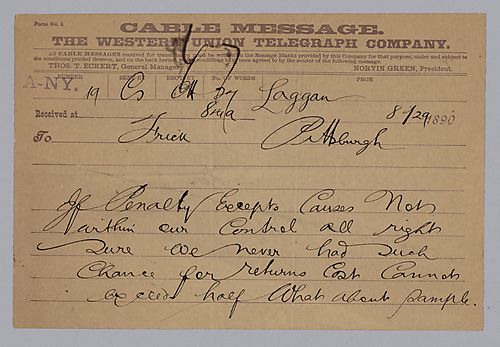 Form No. 1.
CABLE MESSAGE.
THE WESTERN UNION TELEGRAPH COMPANY.
ALL CABLE MESSAGES received for transmission must be written on the Message Blanks provided by this Company for that purpose, under and subject to
the conditions printed thereon, and on the back hereof, which conditions have been agreed to by the sender of the following message.
THOS. T. ECKERT, General Manager. NORVIN GREEN, President.
NUMBER SENT BY REC'D BY No. OF WORDS FROM
A-NY. 19 Cs Laggan
Received at 8/29 1890
To Frick Pittsburgh
If Penalty Excepts Causes Not
Within our Control all right
Sure We never had such
Chance for returns Cost Cannot
exceed half What about sample.